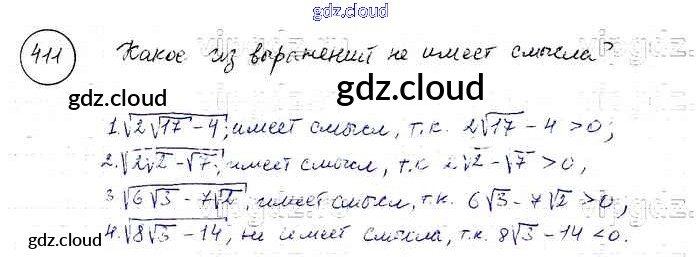 gdz.cloud
411 Какое из выражений не имеет смысла?
gdz.cloud
gdz.cloud
1. √(2√17 - 4); имеет смысл, т.к. 2√17 - 4 > 0;
2. √(2√2 - √7); имеет смысл, т.к. 2√2 - √7 > 0,
3. √(6√3 - 7√2), имеет смысл, т.к. 6√3 - 7√2 > 0;
4. √(8√3 - 14), не имеет смысла, т.к. 8√3 - 14 < 0.
gdz.cloud
gdz.cloud